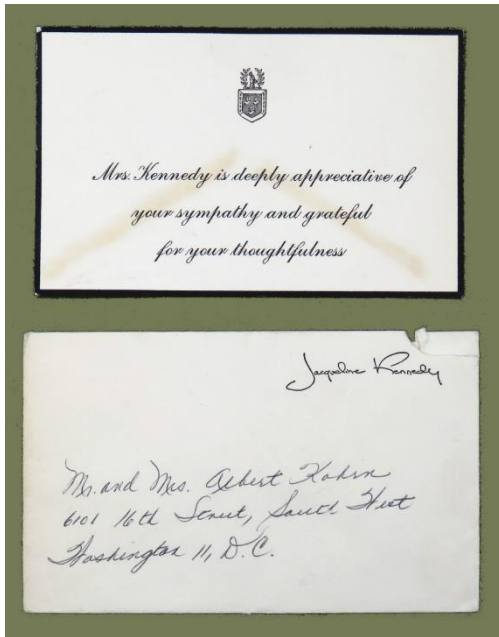 Mrs. Kennedy is deeply appreciative of
your sympathy and grateful
for your thoughtfulness
Jacqueline Kennedy
Mr. and Mrs. Albert Kahrn
6101 16th Street, South West
Washington 11, D.C.